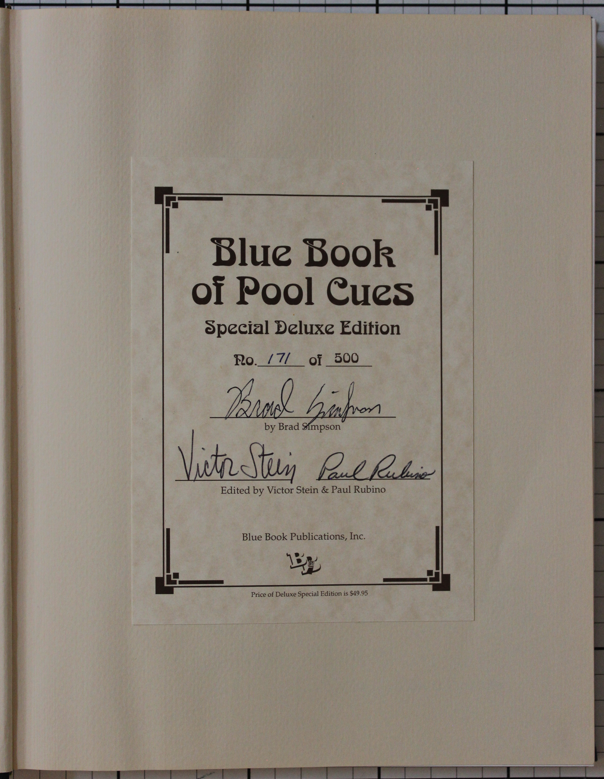 Blue Book
of Pool Cues
Special Deluxe Edition
No. 171 of 500
Brad Simpson
by Brad Simpson
Victor Stein Paul Rubino
Edited by Victor Stein & Paul Rubino
Blue Book Publications, Inc.
Price of Deluxe Special Edition is $49.95